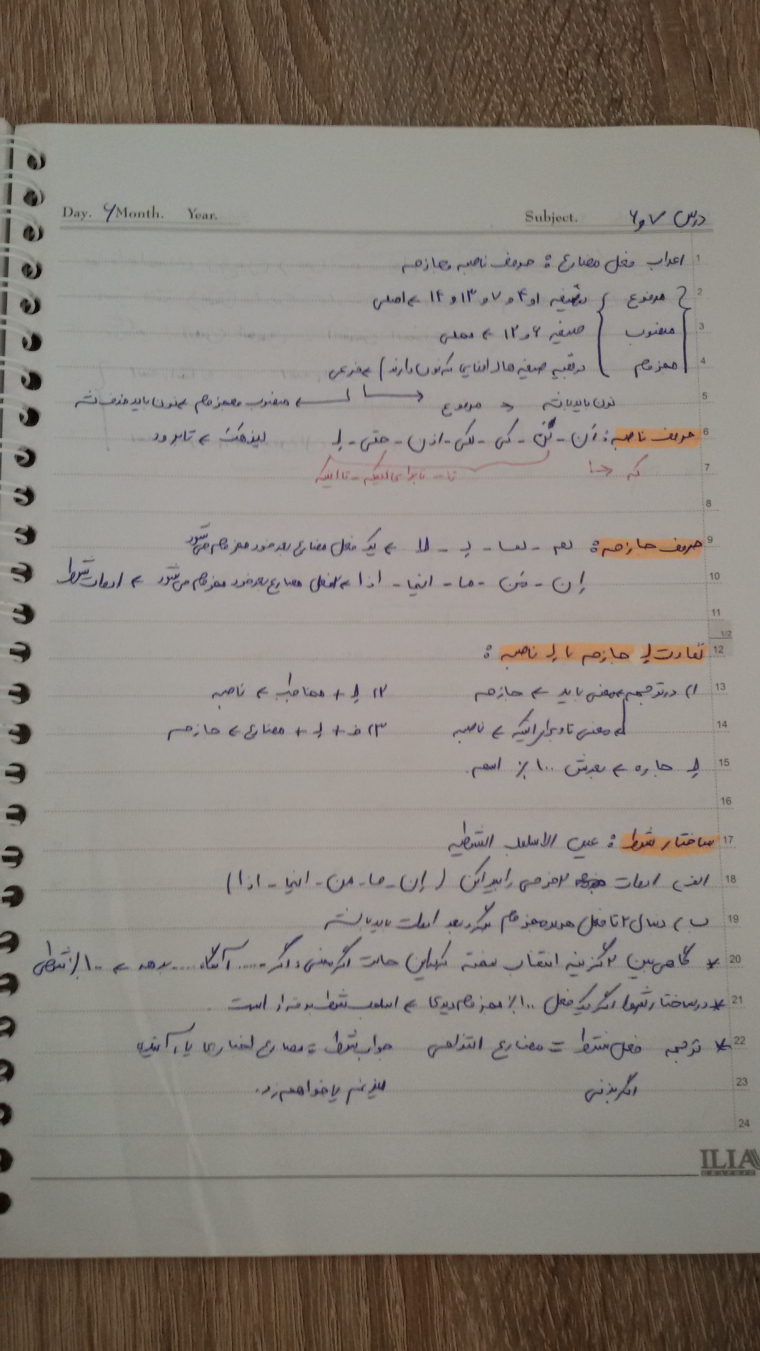 Day. Month. Year. Subject. درس ۷ و ۶
اعراب فعل مضارع : حروف ناصبه و جازمه
مرفوع صیغه ۱ و ۴ و ۷ و ۱۳ و ۱۴ ← اصلی
منصوب صیغه ۶ و ۱۲ ← محلی
مجزوم در بقیه صیغه ها (آنهایی که نون دارند) ← فرعی
نون باید باشد ← مرفوع منصوب و مجزوم ← نون باید حذف شه
حروف ناصبه : أن - لن - کی - لکی - اذن - حتی - لِ لیذهبَ ← تا برود
که تا - تا برای اینکه - تا اینکه
حروف جازمه : لم - لما - لِـ - لا ← یک فعل مضارع بعد خود مجزوم می‌شود
إن - مَن - ما - اینما - اذا ← ۲ فعل مضارع بعد خود مجزوم می‌شود ← ادوات شرط
تفاوت لِ جازمه با لِ ناصبه :
۱) در ترجمه ← معنی باید ← جازمه ۲) لِ + مخاطب ← ناصبه
← معنی تا و برای اینکه ← ناصبه ۳) فـ + لِ + مضارع ← جازمه
لِ جاره ← بعدش ۱۰۰٪ اسم.
ساختار شرط : عین الاسلوب الشرطیه
الف) ادوات جزمی را پیدا کن (إن - ما - من - اینما - اذا)
ب) دنبال ۲ تا فعل مجزوم بگرد بعد ادوات باید باشه
* گاهی بین ۲ گزینه انتخاب سخته این حالت اگر معنی : اگر ..... آنگاه .... بدهد ← ۱۰۰٪ شرطی
* در ساختار شرط اگر یک فعل ۱۰۰٪ مجزوم دیدی ← اسلوب شرط برقرار است.
* ترجمه فعل شرط = مضارع التزامی جواب شرط = مضارع اخباری یا آینده
اگر بزنی میزنم یا خواهم زد.
1
2
3
4
5
6
7
8
9
10
11
1/2
12
13
14
15
16
17
18
19
20
21
22
23
24
ILIA